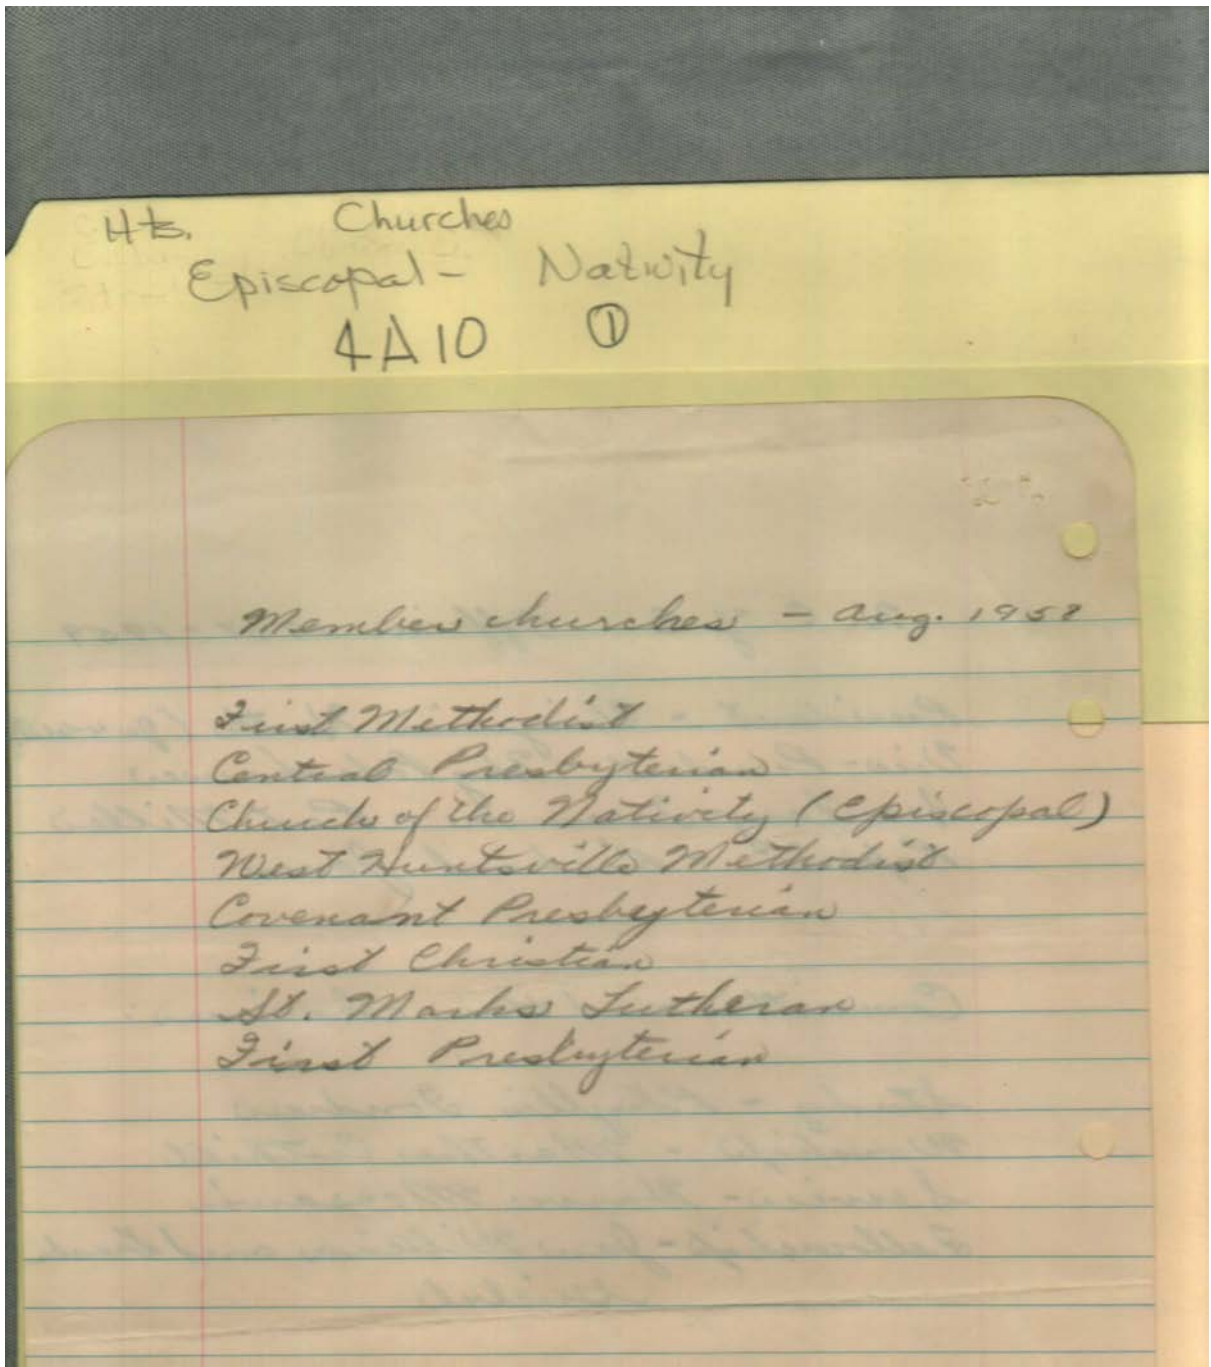 Hts. Churches
Episcopal - Nativity
4A10 ①
Member churches - Aug. 1958
First Methodist
Central Presbyterian
Church of the Nativity (Episcopal)
West Huntsville Methodist
Covenant Presbyterian
First Christian
St. Marks Lutheran
First Presbyterian